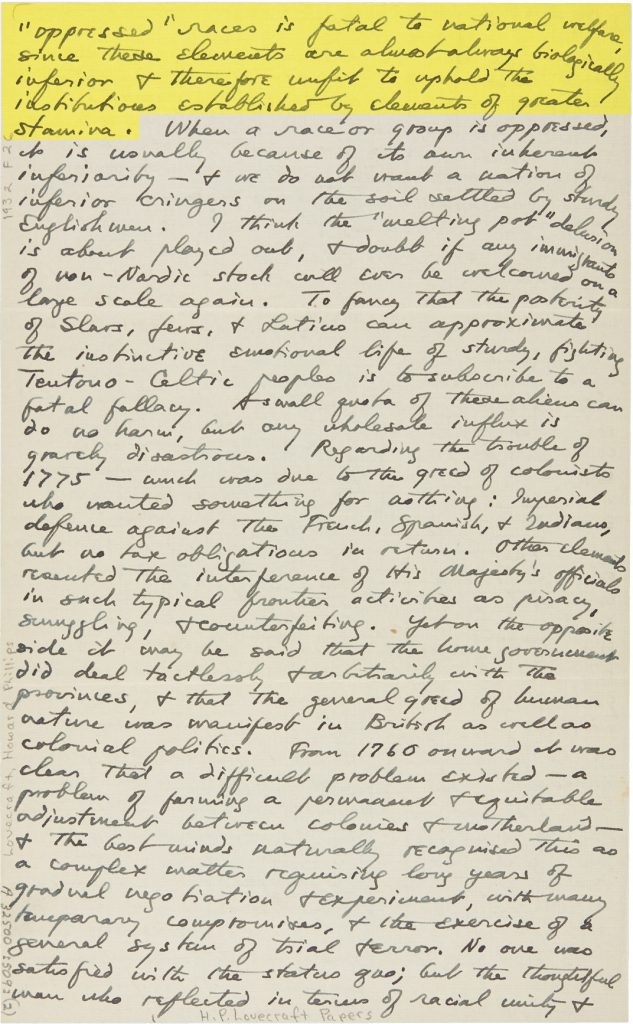 "oppressed" races is fatal to national welfare,
since these elements are almost always biologically
inferior & therefore unfit to uphold the
institutions established by elements of greater
stamina. When a race or group is oppressed,
it is usually because of its own inherent
inferiority — & we do not want a nation of
inferior cringers on the soil settled by sturdy
Englishmen. I think the "melting pot" delusion
is about played out, & doubt if any immigrants
of non-Nordic stock will ever be welcomed on a
large scale again. To fancy that the posterity
of Slavs, Jews, & Latins can approximate
the instinctive emotional life of sturdy, fighting
Teutono-Celtic peoples is to subscribe to a
fatal fallacy. A small quota of these aliens can
do no harm, but any wholesale influx is
gravely disastrous. Regarding the trouble of
1775 — which was due to the greed of colonists
who wanted something for nothing: Imperial
defence against the French, Spanish, & Indians,
but no tax obligations in return. Other elements
resented the interference of His Majesty's officials
in such typical frontier activities as piracy,
smuggling, & counterfeiting. Yet on the opposite
side it may be said that the home government
did deal tactlessly & arbitrarily with the
provinces, & that the general greed of human
nature was manifest in British as well as
colonial politics. From 1760 onward it was
clear that a difficult problem existed — a
problem of forming a permanent & equitable
adjustment between colonies & motherland —
& the best minds naturally recognised this as
a complex matter requiring long years of
gradual negotiation & experiment, with many
temporary compromises, & the exercise of a
general system of trial & error. No one was
satisfied with the status quo; but the thoughtful
man who reflected in terms of racial unity &
H.P. Lovecraft Papers
1932 F26
Lovecraft, Howard Phillips